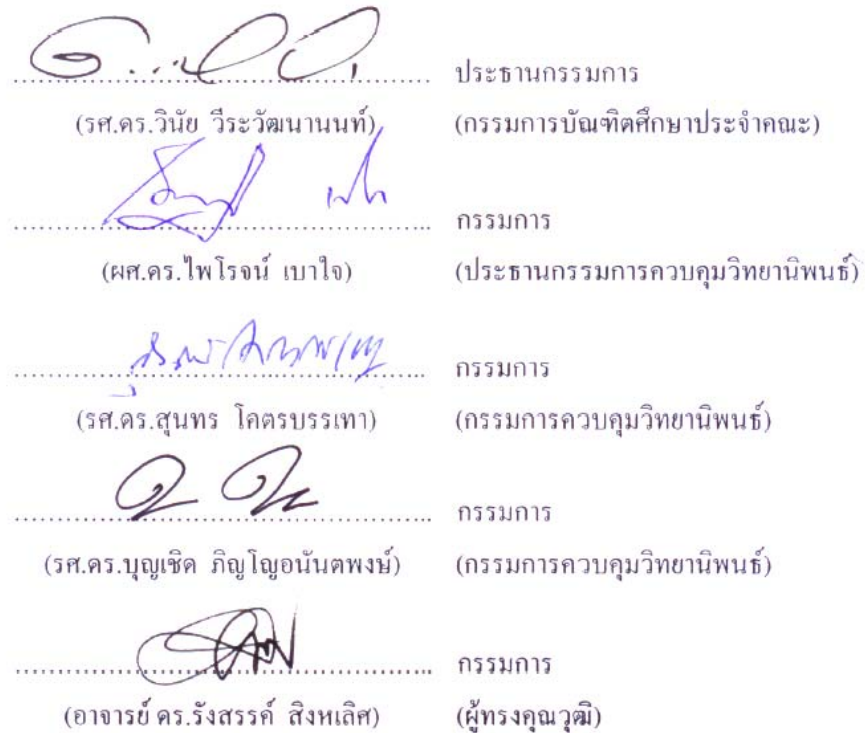 ประธานกรรมการ
(รศ.ดร.วินัย วีระวัฒนานนท์) (กรรมการบัณฑิตศึกษาประจำคณะ)
กรรมการ
(ผศ.ดร.ไพโรจน์ เบาใจ) (ประธานกรรมการควบคุมวิทยานิพนธ์)
กรรมการ
(รศ.ดร.สุนทร โคตรบรรเทา) (กรรมการควบคุมวิทยานิพนธ์)
กรรมการ
(รศ.ดร.บุญเชิด ภิญโญอนันตพงษ์) (กรรมการควบคุมวิทยานิพนธ์)
กรรมการ
(อาจารย์ ดร.รังสรรค์ สิงหเลิศ) (ผู้ทรงคุณวุฒิ)